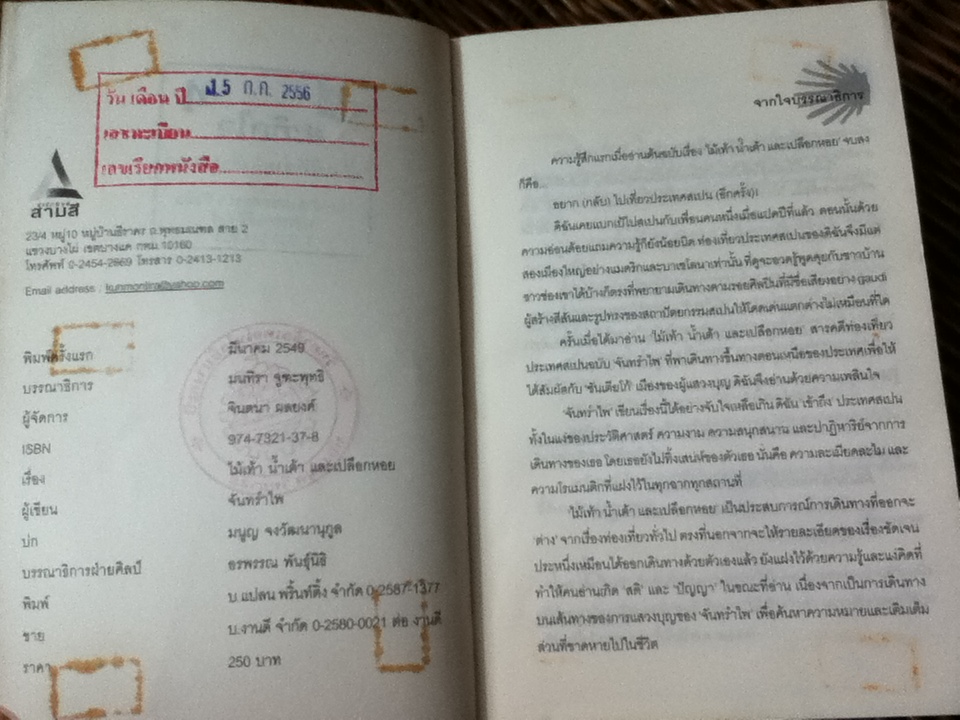 วัน เดือน ปี 15 ก.ค. 2556
เลขทะเบียน
เลขเรียกหนังสือ
สามสี
23/4 หมู่10 หมู่บ้านธีราคร ถ.พุทธมณฑล สาย 2
แขวงบางไผ่ เขตบางแค กทม 10160
โทรศัพท์ 0-2454-2669 โทรสาร 0-2413-1213
Email address : kunmontira@yahoo.com
พิมพ์ครั้งแรก มีนาคม 2549
บรรณาธิการ มนทิรา จูฑะพุทธิ
ผู้จัดการ จินตนา ผลยงค์
ISBN 974-7321-37-8
เรื่อง ไม้เท้า น้ำเต้า และเปลือกหอย
ผู้เขียน จันทร์รำไพ
ปก มนูญ จงวัฒนานุกูล
บรรณาธิการฝ่ายศิลป์ อรพรรณ พันธุ์นิธิ
พิมพ์ บ แปลน พริ้นท์ติ้ง จำกัด 0-2587-1377
ขาย บ.งานดี จำกัด 0-2580-0021 ต่อ งานดี
ราคา 250 บาท
จากใจบรรณาธิการ
ความรู้สึกแรกเมื่ออ่านต้นฉบับเรื่อง 'ไม้เท้า น้ำเต้า และเปลือกหอย' จบลง
ก็คือ...
อยาก (กลับ) ไปเที่ยวประเทศสเปน (อีกครั้ง)!
ดิฉันเคยแบกเป้ไปสเปนกับเพื่อนคนหนึ่งเมื่อแปดปีที่แล้ว ตอนนั้นด้วย
ความอ่อนด้อยแถมความรู้ก็ยังน้อยนิด ท่องเที่ยวประเทศสเปนของดิฉันจึงมีแค่
สองเมืองใหญ่อย่างแมดริกและบาเซโลนาเท่านั้น ที่ดูจะอวดรู้พูดคุยกับชาวบ้าน
ราวช่องเขาได้บ้างก็ตรงที่พยายามเดินทางตามรอยศิลปินที่มีชื่อเสียงอย่าง gaudi
ผู้สร้างสีสันและรูปทรงของสถาปัตยกรรมสเปนให้โดดเด่นแตกต่างไม่เหมือนที่ใด
ครั้นเมื่อได้มาอ่าน 'ไม้เท้า น้ำเต้า และเปลือกหอย' สารคดีท่องเที่ยว
ประเทศสเปนฉบับ 'จันทร์รำไพ' ที่พาเดินทางขึ้นทางตอนเหนือของประเทศเพื่อให้
ได้สัมผัสกับ 'ซันเตียโก้' เมืองของผู้แสวงบุญ ดิฉันจึงอ่านด้วยความเพลินใจ
'จันทร์รำไพ' เขียนเรื่องนี้ได้อย่างจับใจเหลือเกิน ดิฉัน 'เข้าถึง' ประเทศสเปน
ทั้งในแง่ของประวัติศาสตร์ ความงาม ความสนุกสนาน และปาฏิหาริย์จากการ
เดินทางของเธอ โดยเธอยังไม่ทิ้งเสน่ห์ของตัวเธอ นั่นคือ ความละเมียดละไม และ
ความโรแมนติกที่แฝงไว้ในทุกฉากทุกสถานที่
'ไม้เท้า น้ำเต้า และเปลือกหอย' เป็นประสบการณ์การเดินทางที่ออกจะ
'ต่าง' จากเรื่องท่องเที่ยวทั่วไป ตรงที่นอกจากจะให้รายละเอียดของเรื่องชัดเจน
ประหนึ่งเหมือนได้ออกเดินทางด้วยตัวเองแล้ว ยังแฝงไว้ด้วยความรู้และแง่คิดที่
ทำให้คนอ่านเกิด 'สติ' และ 'ปัญญา' ในขณะที่อ่าน เนื่องจากเป็นการเดินทาง
บนเส้นทางของการแสวงบุญของ 'จันทร์รำไพ' เพื่อค้นหาความหมายและเติมเต็ม
ส่วนที่ขาดหายไปในชีวิต